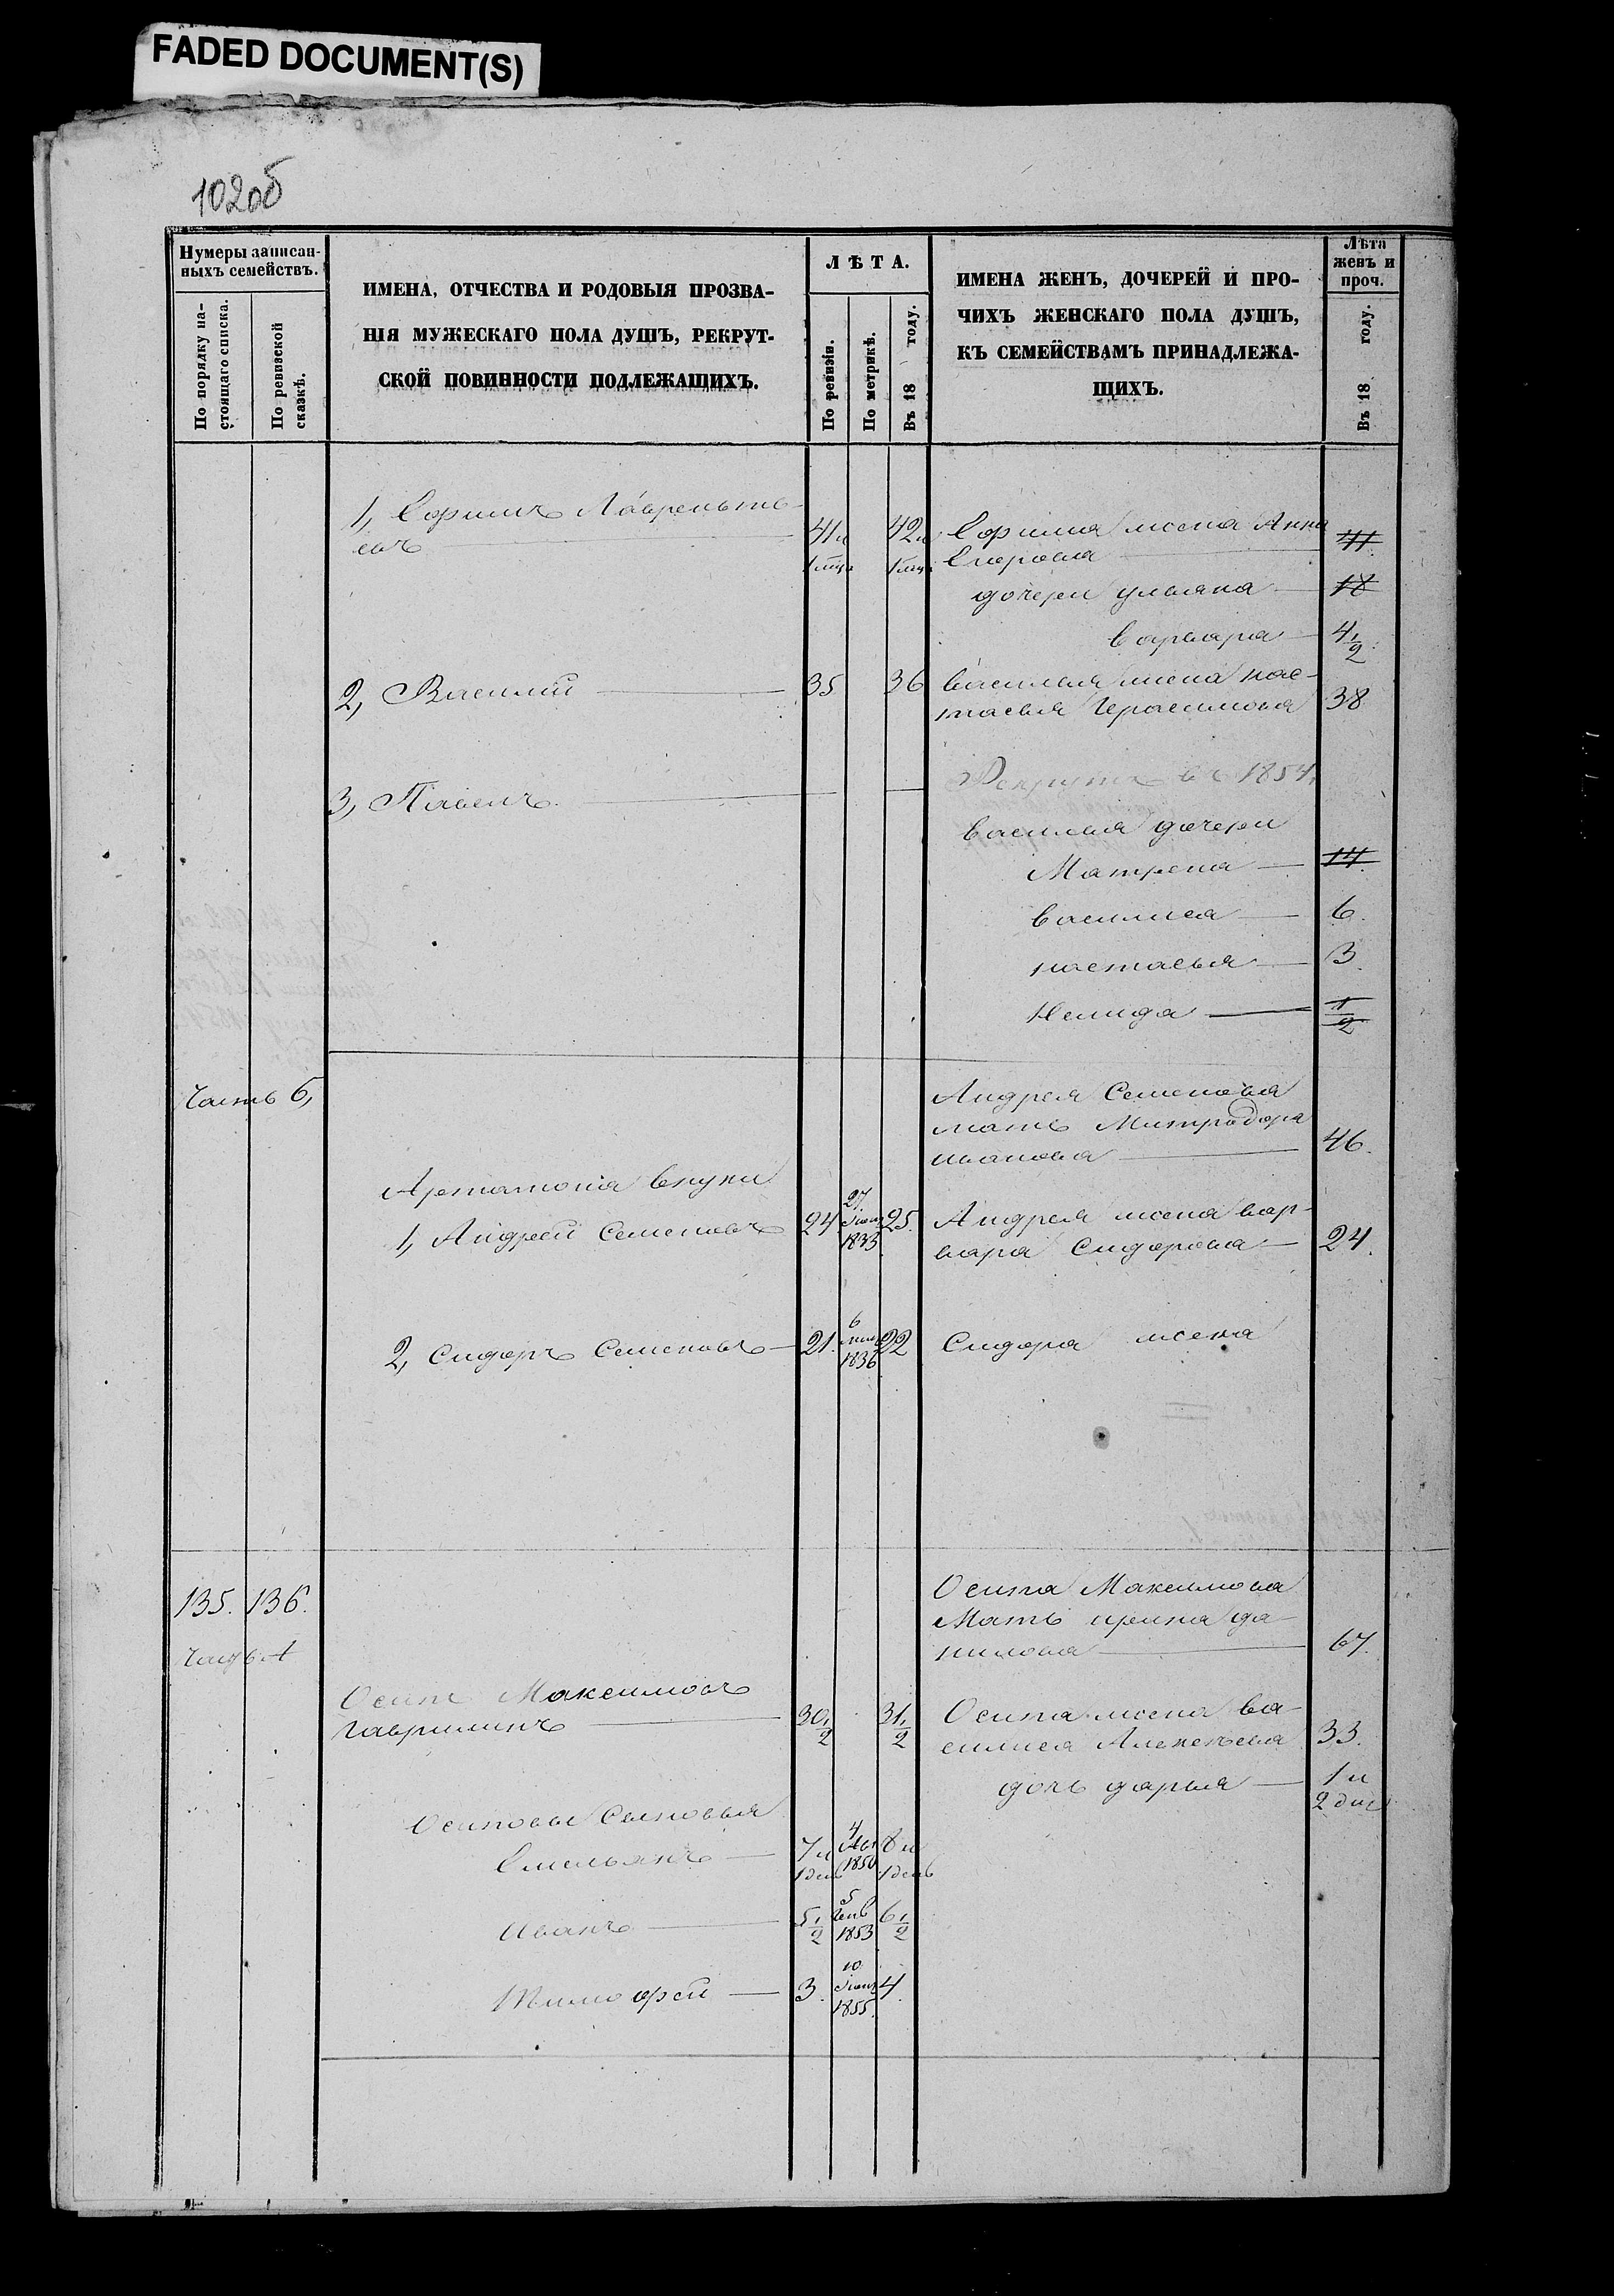 FADED DOCUMENT(S)
102об
Нумеры записан-
ныхъ семействъ.
По порядку на-
стоящаго списка.
По ревизской
сказкѣ.
ИМЕНА, ОТЧЕСТВА И РОДОВЫЯ ПРОЗВА-
НІЯ МУЖЕСКАГО ПОЛА ДУШЪ, РЕКРУТ-
СКОЙ ПОВИННОСТИ ПОДЛЕЖАЩИХЪ.
ЛѢТА.
По ревизіи.
По метрикѣ.
Въ 18 году.
ИМЕНА ЖЕНЪ, ДОЧЕРЕЙ И ПРО-
ЧИХЪ ЖЕНСКАГО ПОЛА ДУШЪ,
КЪ СЕМЕЙСТВАМЪ ПРИНАДЛЕЖА-
ЩИХЪ.
Лѣта
женъ и
проч.
Въ 18 году.
1, Ефимъ Лаврентъ-
евъ 41 42 Ефима жена Анна
Егорова 41
дочери ульяна 18
варвара 4 1/2
2, Василий 35 36 василья жена нас-
тасья Герасимова 38
3, Павелъ Рекрутъ въ 1854
василья дочери
Матрена 14
василиса 6.
настасья 3.
1/2
Часть б,
Андрея Семенова
мать Митродора
иванова 46.
Артамона внуки
1, Андрей Семеновъ 24 27 1833 25. Андрея жена вар-
вара Сидорова 24.
2, Сидоръ Семеновъ 21. 6 1836 22 Сидора жена
135. 136.
Осипа Максимова
Мать ирина да-
нилова 67.
Часть А
Осипъ Максимовъ
гаврилинъ 30 1/2 31 1/2 Осипа жена ва-
силиса Алексѣева 33.
дочь дарья 1 2
Осиповы Сыновья
Емельянъ 7 1 день 4 1850 8 1 день
иванъ 5 1/2 5 Генв 1853 6 1/2
Тимофей 3. 10 1855. 4.